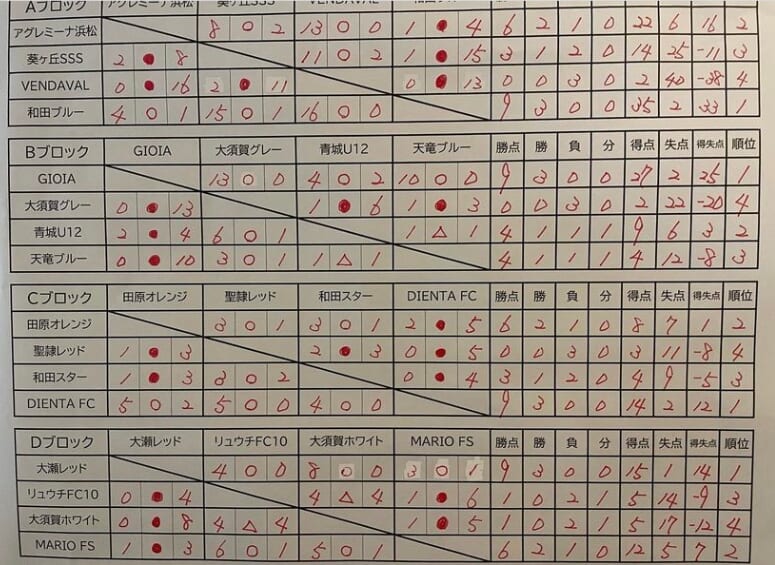 Aブロック アグレミーナ浜松 葵ヶ丘SSS VENDAVAL
アグレミーナ浜松 8 ○ 2 13 ○ 0 1 ● 4 6 2 1 0 22 6 16 2
葵ヶ丘SSS 2 ● 8 11 ○ 2 1 ● 15 3 1 2 0 14 25 -11 3
VENDAVAL 0 ● 16 2 ● 11 0 ● 13 0 0 3 0 2 40 -38 4
和田ブルー 4 ○ 1 15 ○ 1 16 ○ 0 9 3 0 0 35 2 33 1
Bブロック GIOIA 大須賀グレー 青城U12 天竜ブルー 勝点 勝 負 分 得点 失点 得失点 順位
GIOIA 13 ○ 0 4 ○ 2 10 ○ 0 9 3 0 0 27 2 25 1
大須賀グレー 0 ● 13 1 ● 6 1 ● 3 0 0 3 0 2 22 -20 4
青城U12 2 ● 4 6 ○ 1 1 △ 1 4 1 1 1 9 6 3 2
天竜ブルー 0 ● 10 3 ○ 1 1 △ 1 4 1 1 1 4 12 -8 3
Cブロック 田原オレンジ 聖隷レッド 和田スター DIENTA FC 勝点 勝 負 分 得点 失点 得失点 順位
田原オレンジ 3 ○ 1 3 ○ 1 2 ● 5 6 2 1 0 8 7 1 2
聖隷レッド 1 ● 3 2 ● 3 0 ● 5 0 0 3 0 3 11 -8 4
和田スター 1 ● 3 3 ○ 2 0 ● 4 3 1 2 0 4 9 -5 3
DIENTA FC 5 ○ 2 5 ○ 0 4 ○ 0 9 3 0 0 14 2 12 1
Dブロック 大瀬レッド リュウチFC10 大須賀ホワイト MARIO FS 勝点 勝 負 分 得点 失点 得失点 順位
大瀬レッド 4 ○ 0 8 ○ 0 3 ○ 1 9 3 0 0 15 1 14 1
リュウチFC10 0 ● 4 4 △ 4 1 ● 6 1 0 2 1 5 14 -9 3
大須賀ホワイト 0 ● 8 4 △ 4 1 ● 5 1 0 2 1 5 17 -12 4
MARIO FS 1 ● 3 6 ○ 1 5 ○ 1 6 2 1 0 12 5 7 2